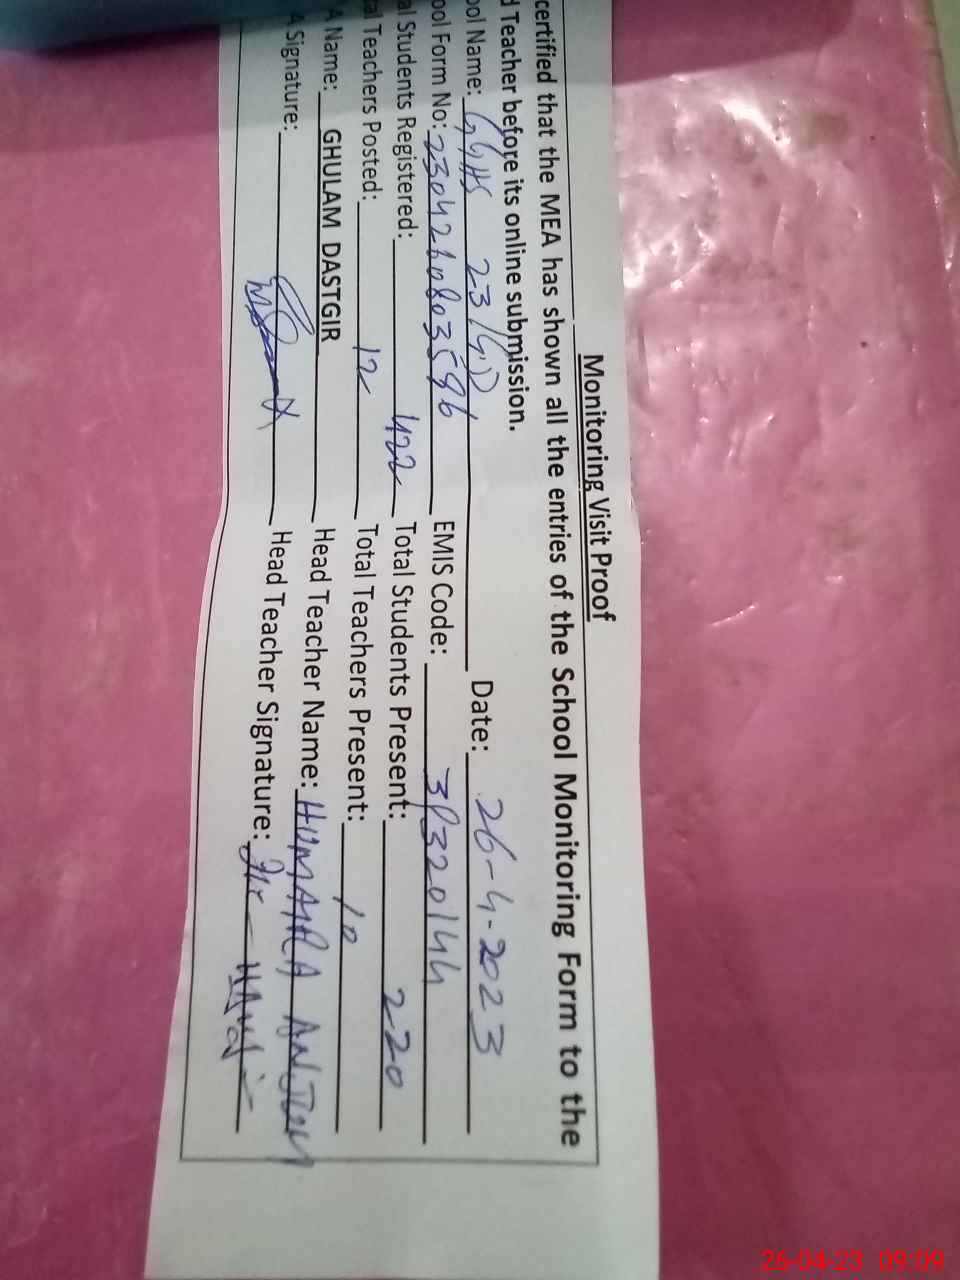 Monitoring Visit Proof
certified that the MEA has shown all the entries of the School Monitoring Form to the
d Teacher before its online submission.
ool Name: GGHS 23/GD Date: 26-4-2023
ool Form No: EMIS Code: 38320144
al Students Registered: 422 Total Students Present: 220
tal Teachers Posted: 12 Total Teachers Present: 10
A Name: GHULAM DASTGIR Head Teacher Name: HUMAIRA ANJUM
A Signature: Head Teacher Signature:
26-04-23 09:09